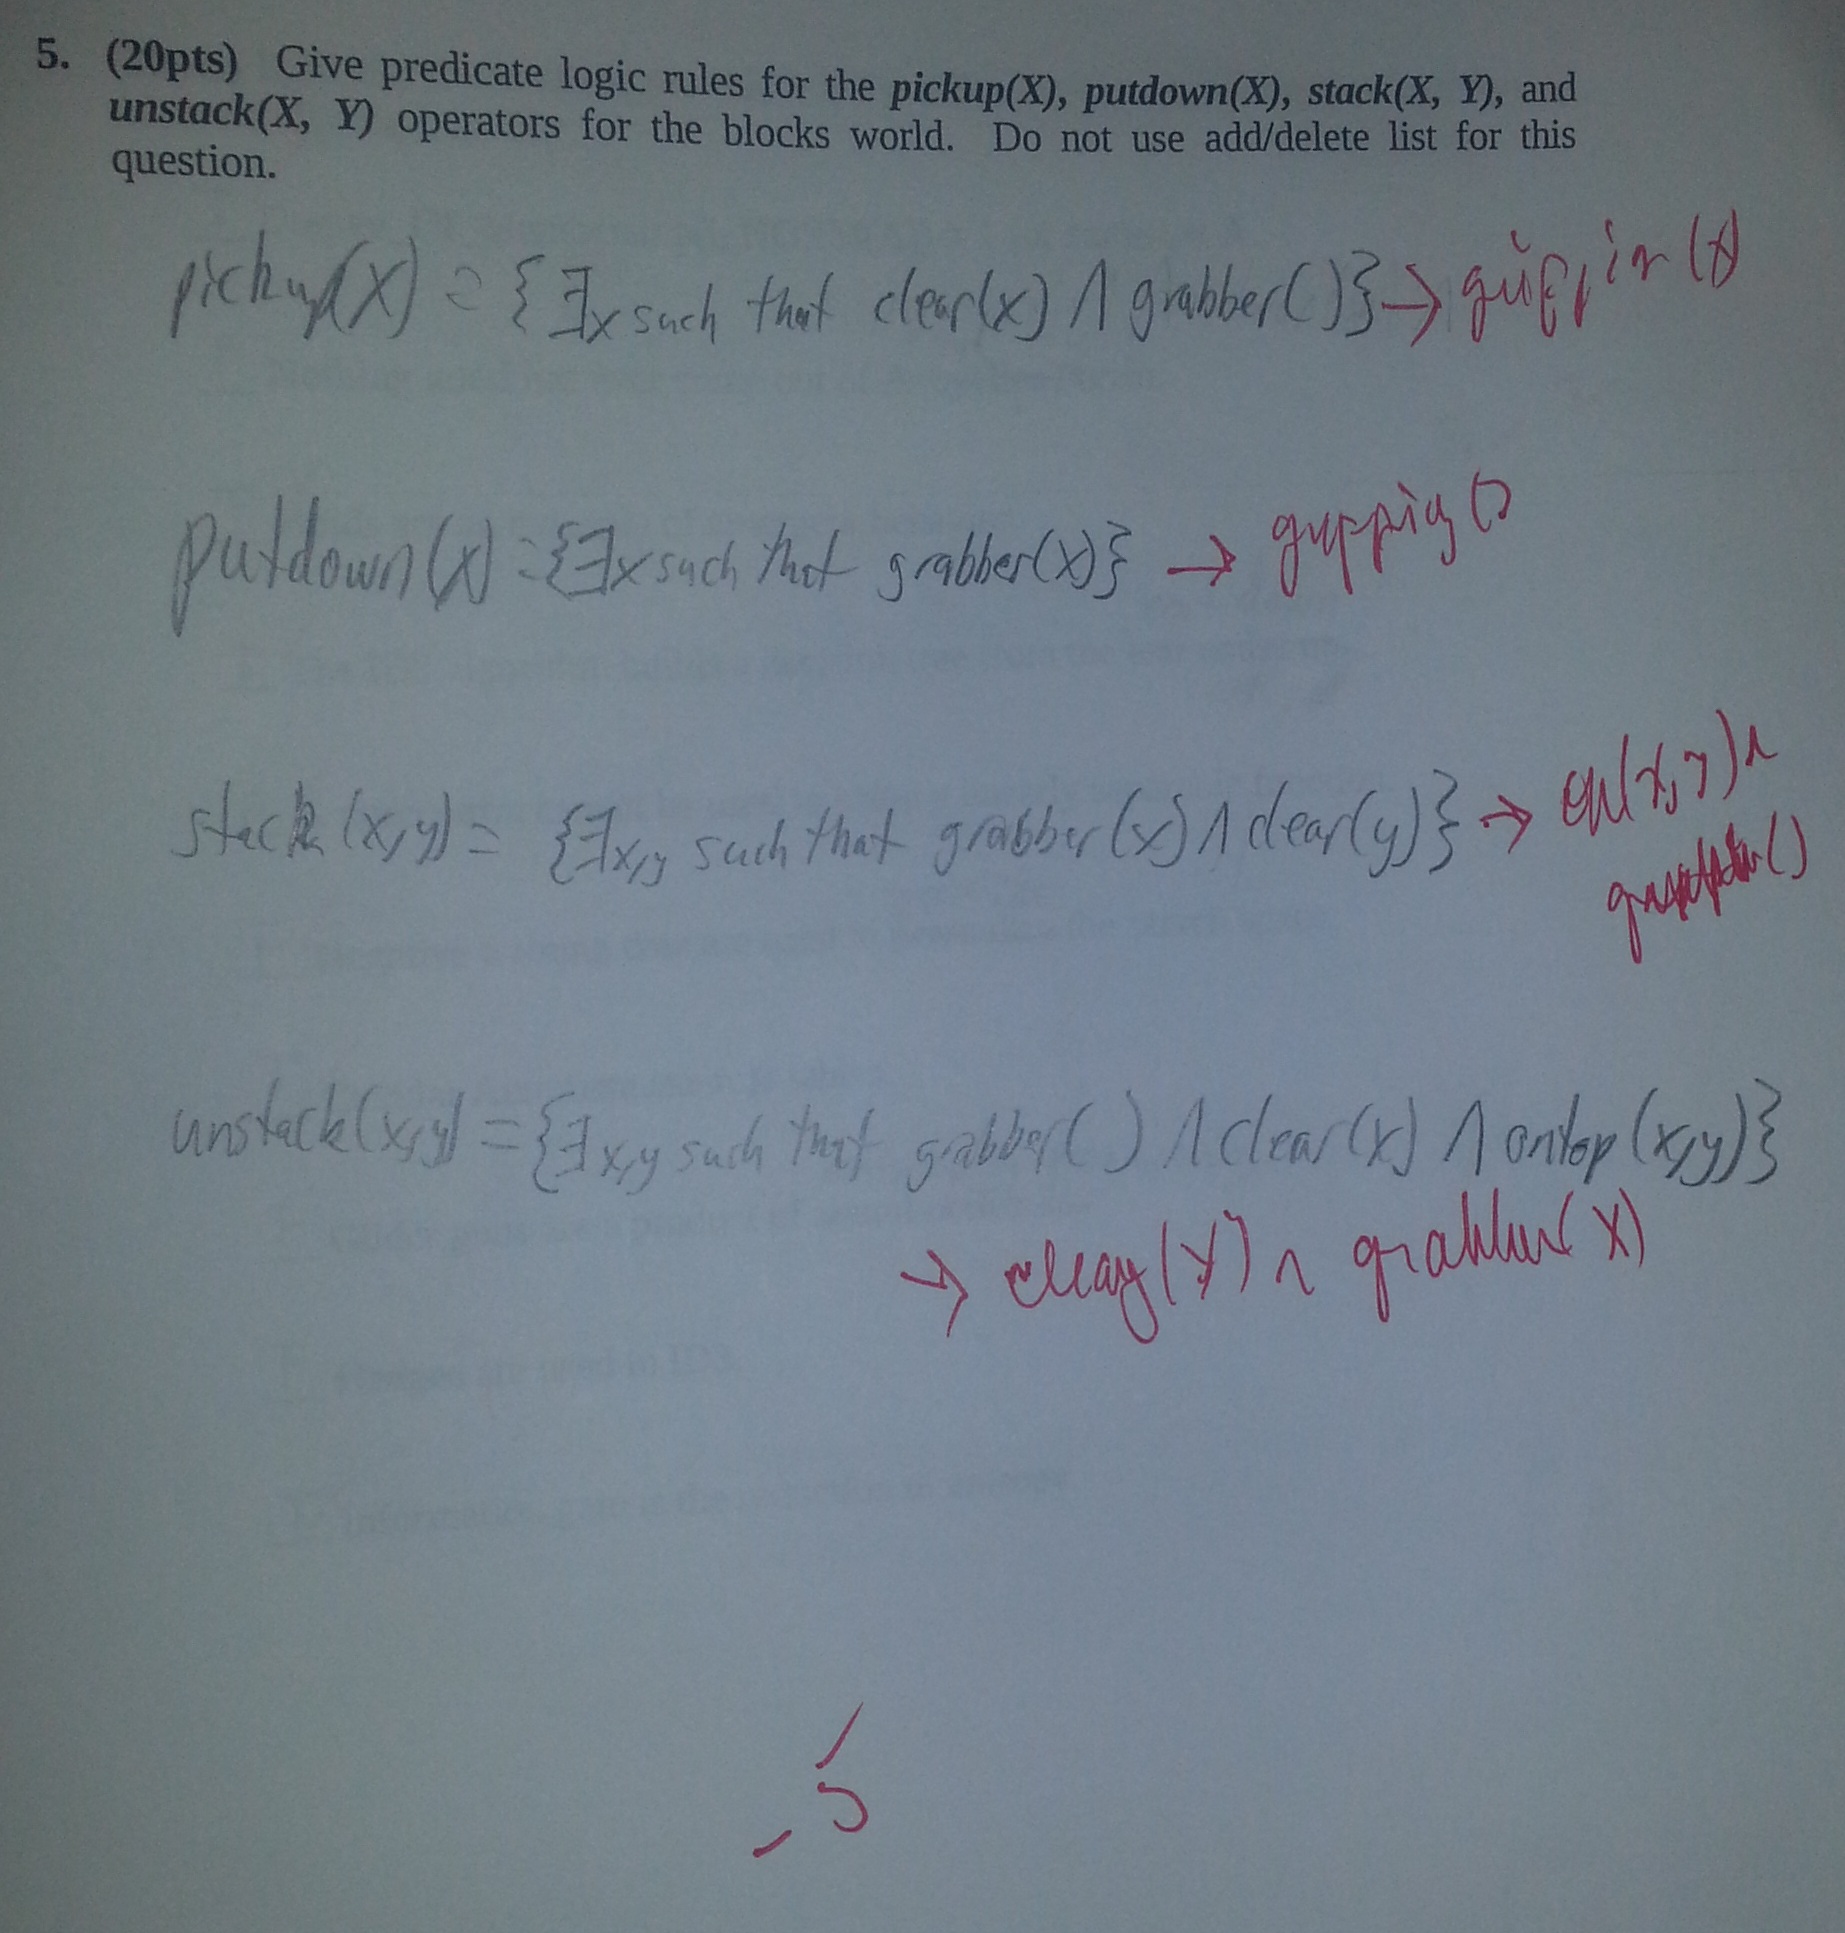 5. (20pts) Give predicate logic rules for the pickup(X), putdown(X), stack(X, Y), and
unstack(X, Y) operators for the blocks world. Do not use add/delete list for this
question.
pickup(X) = {∃x such that clear(x) ∧ grabber()} →
putdown(x) = {∃x such that grabber(x)} →
stack(x,y) = {∃x,y such that grabber(x) ∧ clear(y)} → on(x,y) ∧
unstack(x,y) = {∃x,y such that grabber() ∧ clear(x) ∧ ontop(x,y)}
→ (y) ∧ grabber(x)
-5